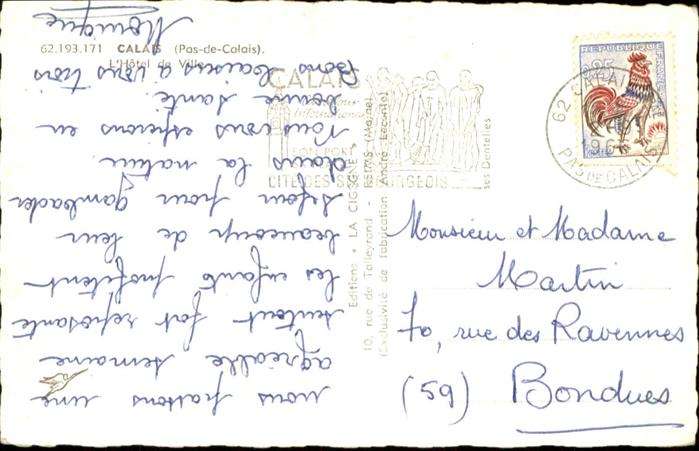 62.193.171 CALAIS (Pas-de-Calais).
L'Hôtel de Ville
nous passons une
agréable semaine
surtout fort reposante
les enfants profitent
beaucoup de leur
séjour pour gambader
dans la nature.
Nous vous espérons en
bonne santé.
Bons baisers à vous trois
Monique
Editions "LA CIGOGNE"
10, rue de Talleyrand - REIMS (Marne)
(Exclusivité de fabrication André Leconte)
CALAIS
SON PORT
CITÉ DES SIX BOURGEOIS
ses Dentelles
62 CALAIS
PAS DE CALAIS
REPUBLIQUE FRANÇAISE
0,25
Monsieur et Madame
Martin
70, rue des Ravennes
(59) Bondues